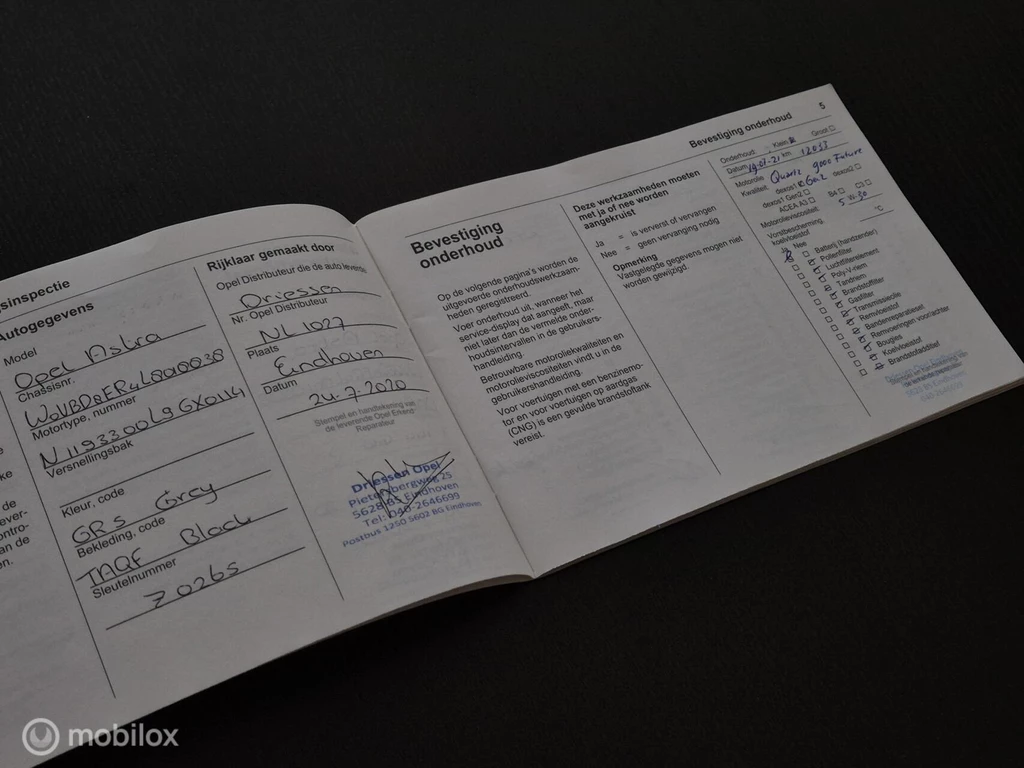 sinspectie
Autogegevens
Model
Opel Astra
Chassisnr.
Motortype, nummer
Versnellingsbak
Kleur, code
GRS Grey
Bekleding, code
TAQF Black
Sleutelnummer
70265
Rijklaar gemaakt door
Opel Distributeur die de auto leverde
Driessen
Nr. Opel Distributeur
NL 1027
Plaats
Eindhoven
Datum
24.7.2020
Stempel en handtekening van
de leverende Opel Erkend
Reparateur
Driessen Opel
5628 Eindhoven
Tel: 040-2646699
Postbus 1250 5602 BG Eindhoven
Bevestiging
onderhoud
Op de volgende pagina's worden de
uitgevoerde onderhoudswerkzaam-
heden geregistreerd.
Voer onderhoud uit, wanneer het
service-display dat aangeeft, maar
niet later dan de vermelde onder-
houdsintervallen in de gebruikers-
handleiding.
Betrouwbare motoroliekwaliteiten en
motorolieviscositeiten vindt u in de
gebruikershandleiding.
Voor voertuigen met een benzinemo-
tor en voor voertuigen op aardgas
(CNG) is een gevulde brandstoftank
vereist.
Deze werkzaamheden moeten
met ja of nee worden
aangekruist
Ja = is ververst of vervangen
Nee = geen vervanging nodig
Opmerking
Vastgelegde gegevens mogen niet
worden gewijzigd.
Bevestiging onderhoud 5
Onderhoud: Klein Groot
Datum 19-07-21 km
Motorolie Quartz 9000 Future
Kwaliteit: dexos1 Gen2 dexos2
dexos1 Gen2
ACEA A3 B4 C3
Motorolieviscositeit: 5W-30
Vorstbescherming °C
koelvloeistof
Ja Nee
Batterij (handzender)
Pollenfilter
Luchtfilterelement
Poly-V-riem
Tandriem
Brandstoffilter
Gasfilter
Transmissieolie
Remvloeistof
Bandenreparatieset
Remvoeringen voor/achter
Bougies
Koelvloeistof
Brandstofadditief
mobilox